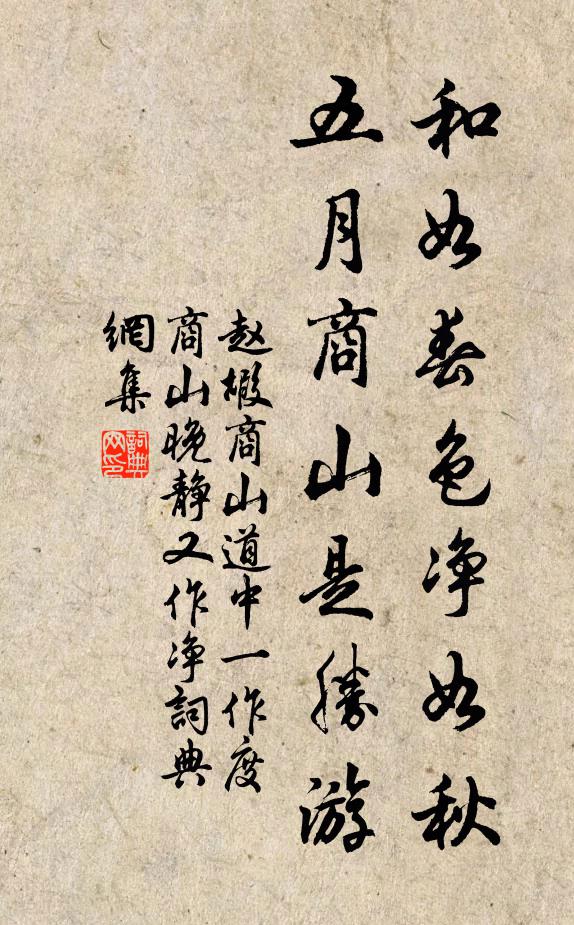 和如春色净如秋
五月商山是勝游
赵嘏商山道中一作度
商山晚静又作净詞典
網集
詞典网印